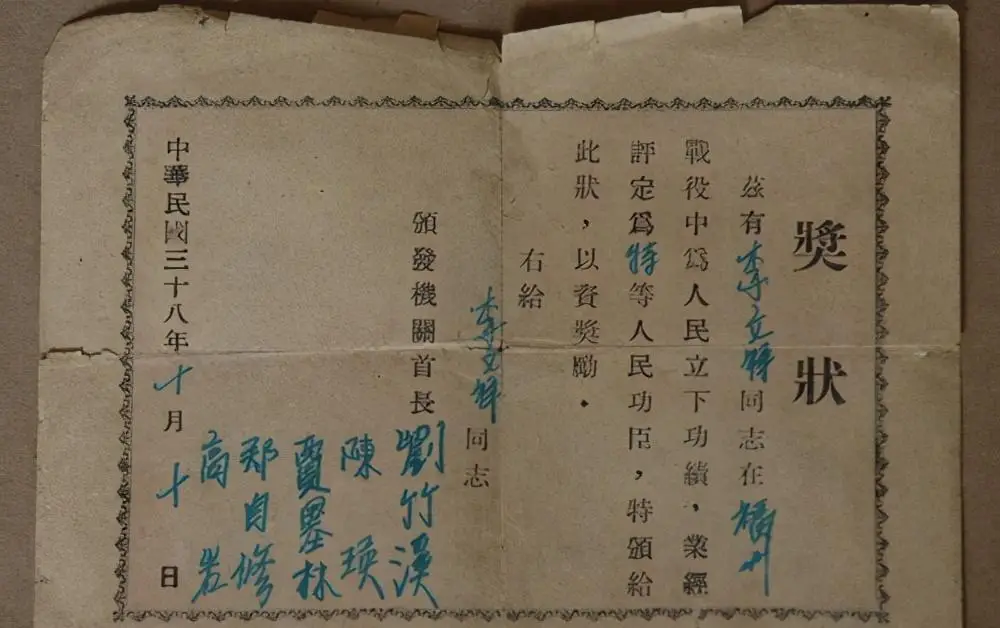 獎狀
茲有李立同志在
戰役中爲人民立下功績、業經
評定爲特等人民功臣，特頒給
此狀，以資獎勵．
右給
李立同志
頒發機關首長劉竹溪
陳瑛
賈墨林
郑自修
高岩
中華民國三十八年十月十日